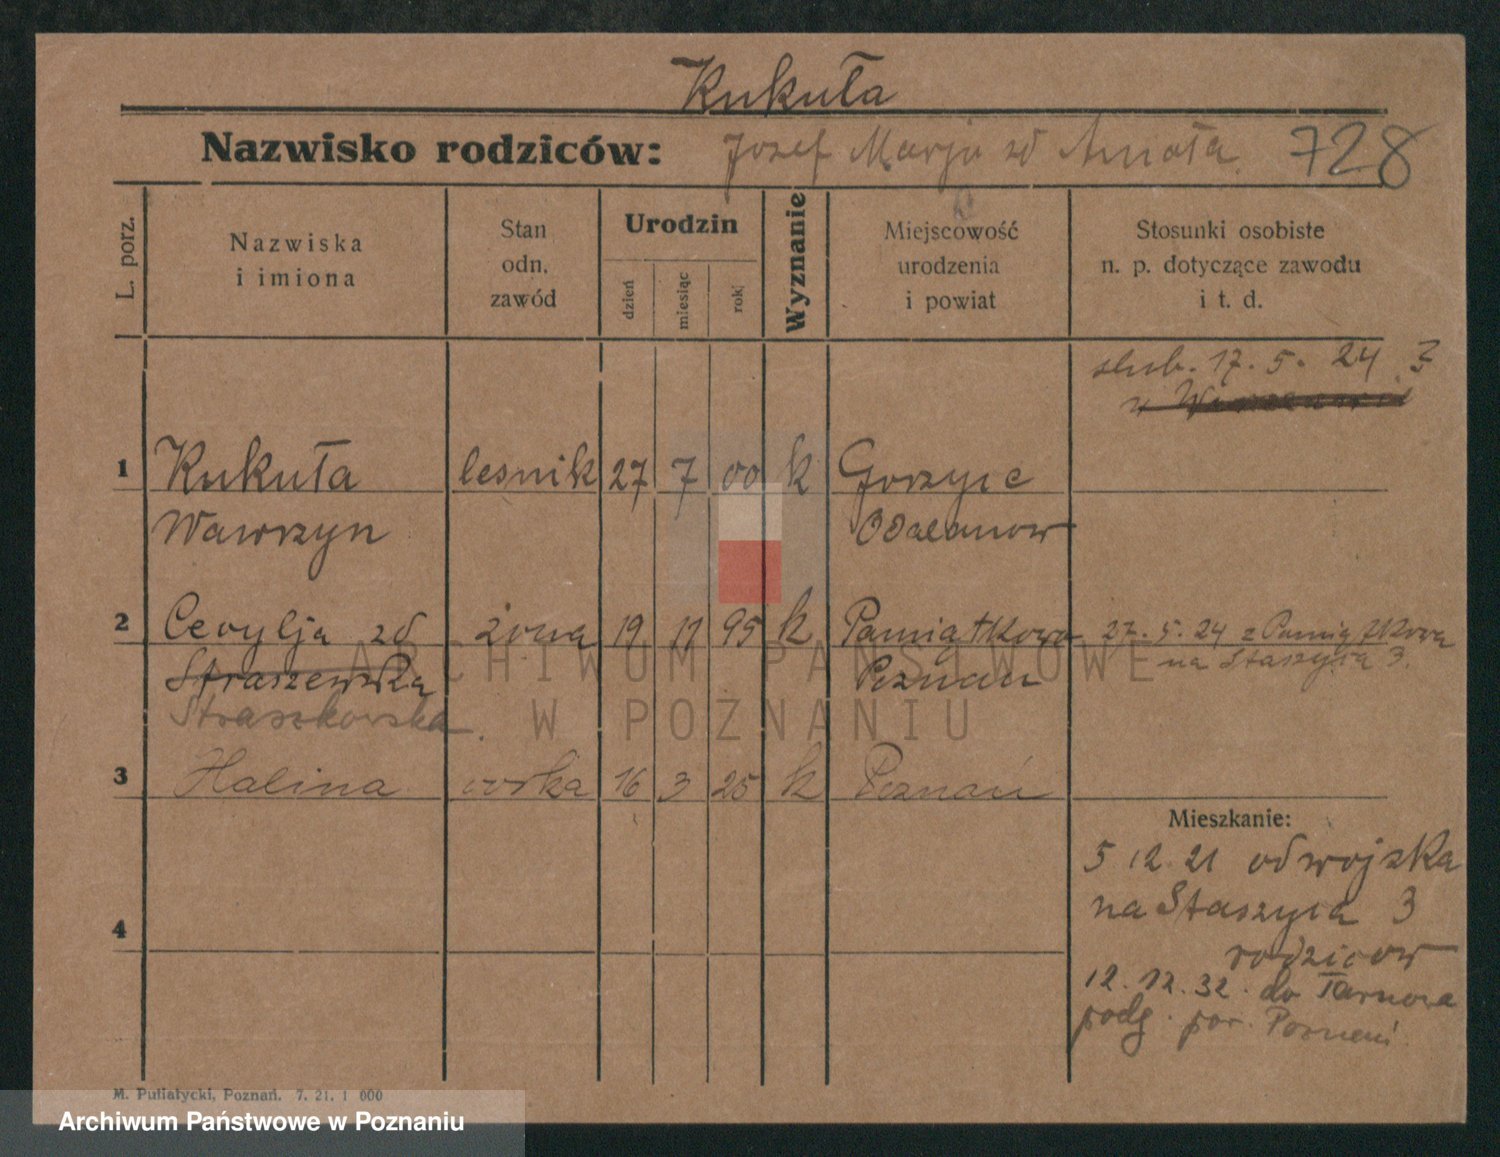 Kukuła
Nazwisko rodziców: Jozef Marja zd 728
L. porz.
Nazwiska i imiona
Stan odn. zawód
Urodzin
dzień
miesiąc
rok
Wyznanie
Miejscowość urodzenia i powiat
Stosunki osobiste n. p. dotyczące zawodu i t. d.
slub. 17. 5. 24
1 Kukuła lesnik 27 7 00 k Gorzyce
Wawrzyn Odalanow
2 Cecylja zd żona 19 11 95 k Pamiątkowo 27. 5. 24 z Pamiątkowa
na Staszyca 3.
Straszewska Poznan
Straszkowska.
3 Halina corka 16 3 25 k Poznań
Mieszkanie:
5 12. 21 od wojska
na Staszyca 3
4
rodzicow
12. 12. 32. do Tarnowa
podg. pow. Poznań
M. Putiatycki, Poznań. 7. 21. 1 000
ARCHIWUM PAŃSTWOWE
W POZNANIU
Archiwum Państwowe w Poznaniu